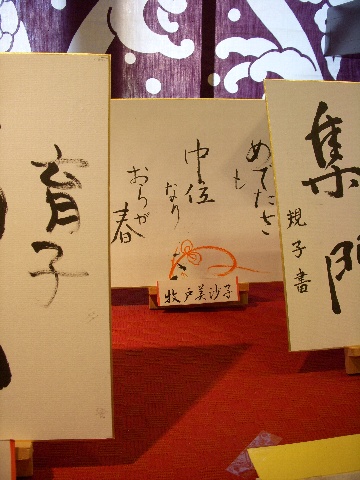 集門
規子書
めでたさ
も
中位
なり
おらが
春
牧戸美沙子
育子